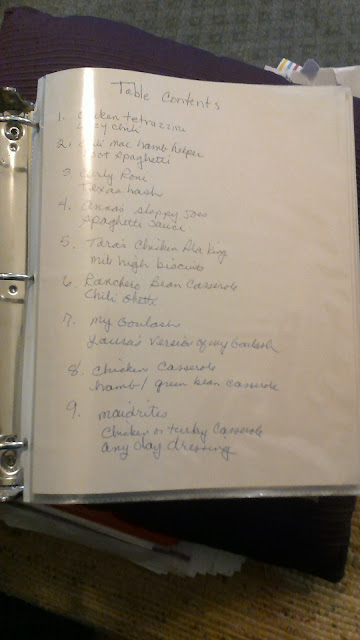 Table Contents
1. Chicken tetrazzini
Lazy Chili
2. Chili mac hamb helper
Root Spaghetti
3 Curly Roni
Texas hash
4. Anna's sloppy Joes
Spaghetti Sauce
5. Tara's Chicken Ala King
mile high biscuits
6 Ranchero Bean Casserole
Chili
7. my Goulash
Laura's Version of my Goulash
8. Chicken Casserole
hamb/ green bean casserole
9. maidrites
Chicken or turkey Casserole
any day dressing